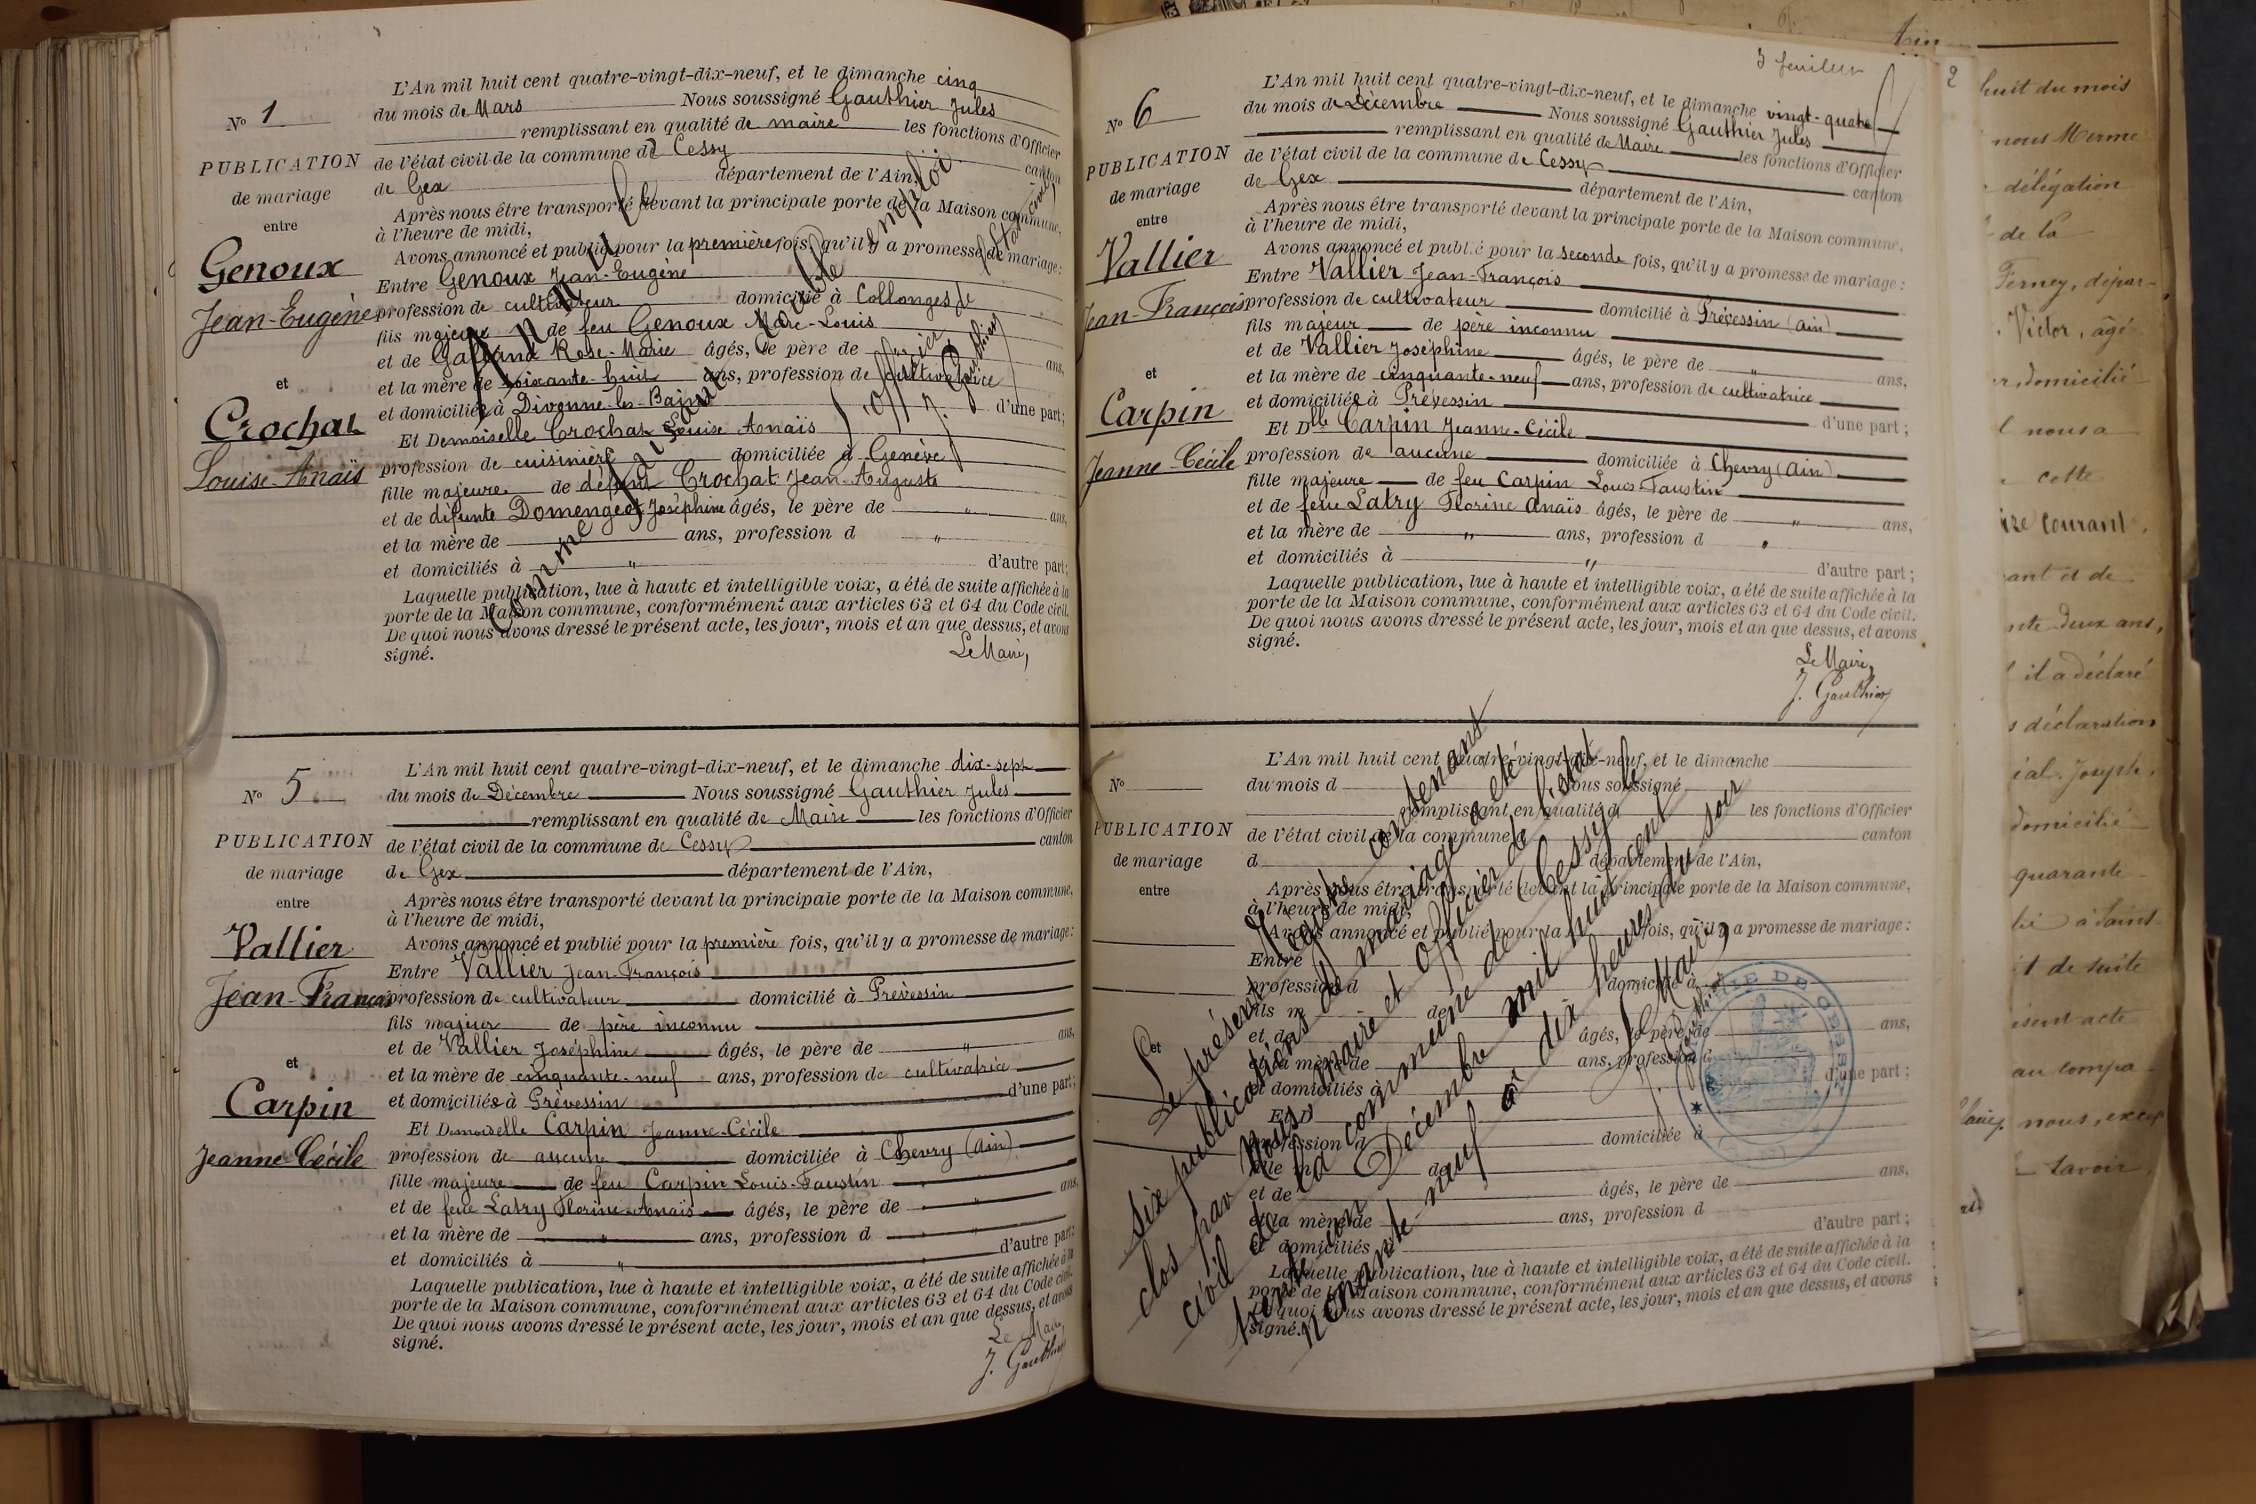 No 1
PUBLICATION
de mariage
entre
Genoux
Jean-Eugène
et
Crochat
Louise-Anaïs
L'An mil huit cent quatre-vingt-dix-neuf, et le dimanche cinq
du mois de Mars Nous soussigné Gauthier Jules
remplissant en qualité de maire les fonctions d'Officier
de l'état civil de la commune de Cessy canton
de Gex département de l'Ain,
Après nous être transporté devant la principale porte de la Maison commune,
à l'heure de midi,
Avons annoncé et publié pour la première fois, qu'il y a promesse de mariage:
Entre Genoux Jean-Eugène
profession de cultivateur domicilié à Collonges
fils majeur de feu Genoux Marc-Louis
et de Rose-Marie âgés, le père de ans,
et la mère de soixante-huit ans, profession de cultivatrice
et domiciliée à Divonne-les-Bains d'une part;
Et Demoiselle Crochat Louise Anaïs
profession de cuisinière domiciliée à Genève
fille majeure de défunt Crochat Jean-Auguste
et de défunte Domengeot Joséphine âgés, le père de " ans,
et la mère de ans, profession d "
et domiciliés à " d'autre part;
Laquelle publication, lue à haute et intelligible voix, a été de suite affichée à la
porte de la Maison commune, conformément aux articles 63 et 64 du Code civil.
De quoi nous avons dressé le présent acte, les jour, mois et an que dessus, et avons
signé.
Le Maire,
Annulé
comme faisant double emploi
l'officier de l'état civil
J. Gauthier
No 5
PUBLICATION
de mariage
entre
Vallier
Jean-François
et
Carpin
Jeanne-Cécile
L'An mil huit cent quatre-vingt-dix-neuf, et le dimanche dix-sept
du mois de Décembre Nous soussigné Gauthier Jules
remplissant en qualité de Maire les fonctions d'Officier
de l'état civil de la commune de Cessy canton
de Gex département de l'Ain,
Après nous être transporté devant la principale porte de la Maison commune,
à l'heure de midi,
Avons annoncé et publié pour la première fois, qu'il y a promesse de mariage:
Entre Vallier Jean-François
profession de cultivateur domicilié à Prévessin
fils majeur de père inconnu
et de Vallier Joséphine âgés, le père de " ans,
et la mère de cinquante-neuf ans, profession de cultivatrice
et domiciliés à Prévessin d'une part;
Et Demoiselle Carpin Jeanne-Cécile
profession de aucune domiciliée à Chevry (Ain)
fille majeure de feu Carpin Louis-Faustin
et de feue Latry Florine-Anaïs âgés, le père de " ans,
et la mère de " ans, profession d "
et domiciliés à " d'autre part:
Laquelle publication, lue à haute et intelligible voix, a été de suite affichée à la
porte de la Maison commune, conformément aux articles 63 et 64 du Code civil.
De quoi nous avons dressé le présent acte, les jour, mois et an que dessus, et avons
signé.
Le Maire,
J. Gauthier
3 feuillets
No 6
PUBLICATION
de mariage
entre
Vallier
Jean-François
et
Carpin
Jeanne-Cécile
L'An mil huit cent quatre-vingt-dix-neuf, et le dimanche vingt-quatre
du mois de Décembre Nous soussigné Gauthier Jules
remplissant en qualité de Maire les fonctions d'Officier
de l'état civil de la commune de Cessy canton
de Gex département de l'Ain,
Après nous être transporté devant la principale porte de la Maison commune,
à l'heure de midi,
Avons annoncé et publié pour la seconde fois, qu'il y a promesse de mariage:
Entre Vallier Jean-François
profession de cultivateur domicilié à Prévessin (Ain)
fils majeur de père inconnu
et de Vallier Joséphine âgés, le père de " ans,
et la mère de cinquante-neuf ans, profession de cultivatrice
et domiciliée à Prévessin d'une part;
Et Dlle Carpin Jeanne-Cécile
profession de aucune domiciliée à Chevry (Ain)
fille majeure de feu Carpin Louis-Faustin
et de feue Latry Florine Anaïs âgés, le père de " ans,
et la mère de " ans, profession d "
et domiciliés à " d'autre part;
Laquelle publication, lue à haute et intelligible voix, a été de suite affichée à la
porte de la Maison commune, conformément aux articles 63 et 64 du Code civil.
De quoi nous avons dressé le présent acte, les jour, mois et an que dessus, et avons
signé.
Le Maire,
J. Gauthier
No
PUBLICATION
de mariage
entre
et
L'An mil huit cent quatre-vingt-dix-neuf, et le dimanche
du mois d Nous soussigné
remplissant en qualité d les fonctions d'Officier
de l'état civil de la commune d canton
d département de l'Ain,
Après nous être transporté devant la principale porte de la Maison commune,
à l'heure de midi,
Avons annoncé et publié pour la fois, qu'il y a promesse de mariage:
Entre
profession d domicilié à
fils m de
et de âgés, le père de ans,
et la mère de ans, profession d
et domiciliés à d'une part;
Et D
profession d domiciliée à
fille m de
et de âgés, le père de ans,
et la mère de ans, profession d
et domiciliés à d'autre part;
Laquelle publication, lue à haute et intelligible voix, a été de suite affichée à la
porte de la Maison commune, conformément aux articles 63 et 64 du Code civil.
De quoi nous avons dressé le présent acte, les jour, mois et an que dessus, et avons
signé.
Le présent registre contenant
six publications de mariage a été
clos par Nous, maire et officier de l'état
civil de la commune de Cessy le
trente un Décembre mil huit cent
nonante-neuf à dix heures du soir
Le Maire,
J. Gauthier
MAIRIE DE CESSY
2
Ain
huit du mois
nous Merme
délégation
de la
Ferney, dépar-
Victor, âgé
domicilié
nous a
cette
courant,
ant et de
deux ans,
il a déclaré
déclaration
Joseph,
domicilié
quarante
à Saint
de suite
acte
au compa
nous, excep
savoir